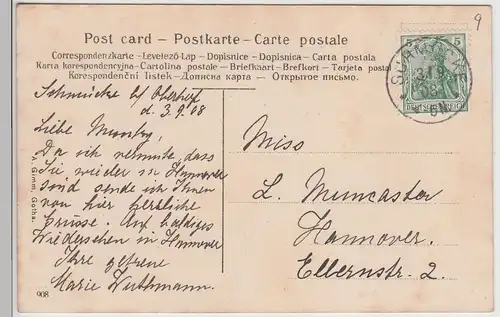 9
Post card – Postkarte – Carte postale
Correspondenzkarte - Levelező-Lap - Dopisnice - Dopisnica - Carta postala
Karta korespondencyjna - Cartolina postale - Briefkaart - Brefkort - Tarjeta postal
Korespondenční listek - Дописна карта - Открытое письмо.
5
DEUTSCHES REICH
SCHMÜCKE
3/9
08
5-6N
Schmücke b/ Oberhof
d. 3.9.08
Liebe
Da ich vermute, dass
Sie wieder in Hannover
sind sende ich Ihnen
von hier herzliche
Grüsse. Auf baldiges
Wiedersehen in Hannover
Ihre getreue
Marie Wuthmann.
Miss
L. Muncaster
Hannover.
Ellernstr. 2.
A. Gimm, Gotha.
908